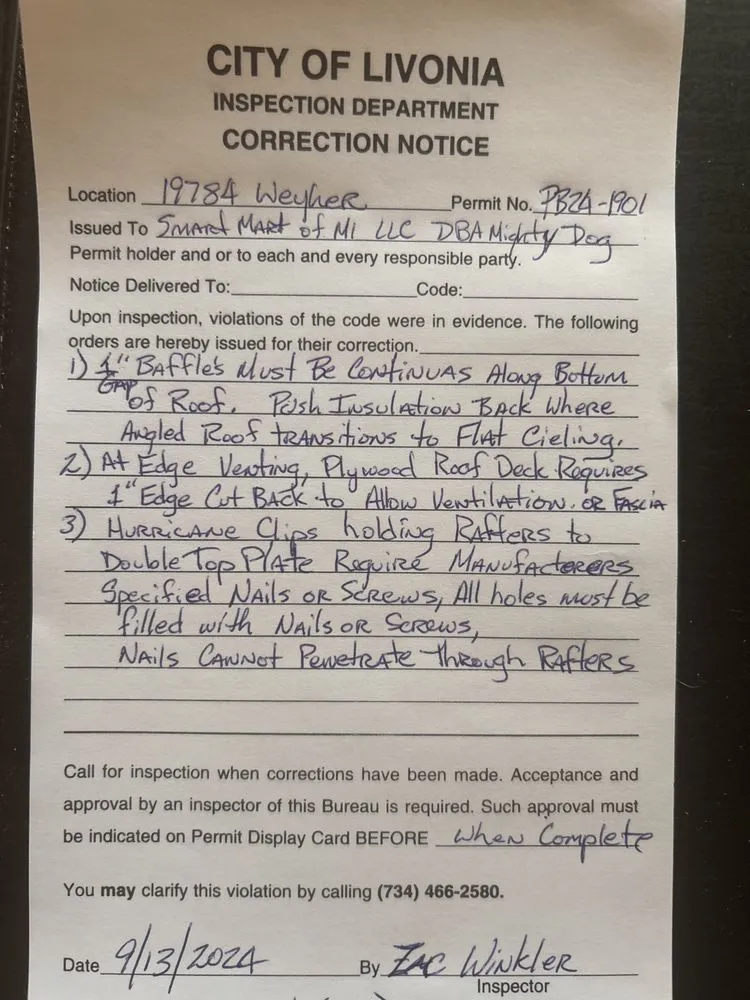 CITY OF LIVONIA
INSPECTION DEPARTMENT
CORRECTION NOTICE
Location 19784 Weyher Permit No. PB24-1901
Issued To Smart Mart of MI LLC DBA Mighty Dog
Permit holder and or to each and every responsible party.
Notice Delivered To: Code:
Upon inspection, violations of the code were in evidence. The following
orders are hereby issued for their correction.
1) 1" Baffle's Must Be Continuas Along Bottom
GAP of Roof. Push Insulation Back Where
Angled Roof transitions to Flat Cieling.
2) At Edge Venting, Plywood Roof Deck Requires
1" Edge Cut Back to Allow Ventilation. or Fascia
3) Hurricane Clips holding Rafters to
Double Top Plate Require Manufacterers
Specified Nails or Screws, All holes must be
filled with Nails or Screws,
Nails Cannot Penetrate Through Rafters
Call for inspection when corrections have been made. Acceptance and
approval by an inspector of this Bureau is required. Such approval must
be indicated on Permit Display Card BEFORE When Complete
You may clarify this violation by calling (734) 466-2580.
Date 9/13/2024 By Zac Winkler
Inspector